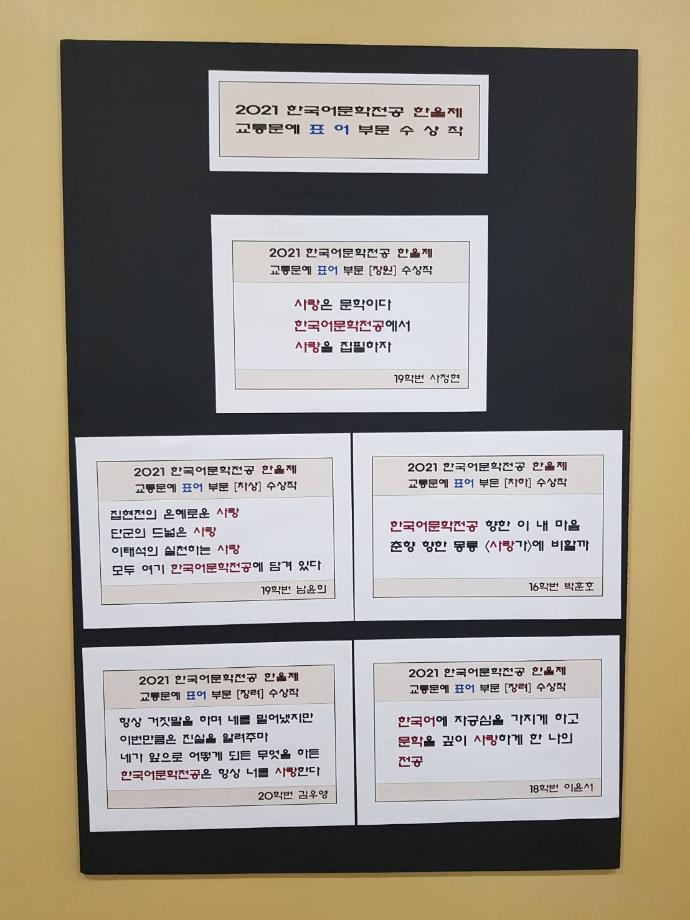 2021 한국어문학전공 한울제
교통문예 표 어 부문 수 상 작
2021 한국어문학전공 한울제
교통문예 표어 부문 [장원] 수상작
사랑은 문학이다
한국어문학전공에서
사랑을 집필하자
19학번 사정현
2021 한국어문학전공 한울제
교통문예 표어 부문 [차상] 수상작
집현전의 은혜로운 사랑
단군의 드넓은 사랑
이태석의 실천하는 사랑
모두 여기 한국어문학전공에 담겨 있다
19학번 남윤희
2021 한국어문학전공 한울제
교통문예 표어 부문 [차하] 수상작
한국어문학전공 향한 이 내 마음
춘향 향한 몽룡 <사랑가>에 비할까
16학번 박훈호
2021 한국어문학전공 한울제
교통문예 표어 부문 [장려] 수상작
항상 거짓말을 하며 네를 밀어냈지만
이번만큼은 진실을 알려주마
네가 앞으로 어떻게 되든 무엇을 하든
한국어문학전공은 항상 너를 사랑한다
20학번 김우영
2021 한국어문학전공 한울제
교통문예 표어 부문 [장려] 수상작
한국어에 자긍심을 가지게 하고
문학을 깊이 사랑하게 한 나의
전공
18학번 이윤서